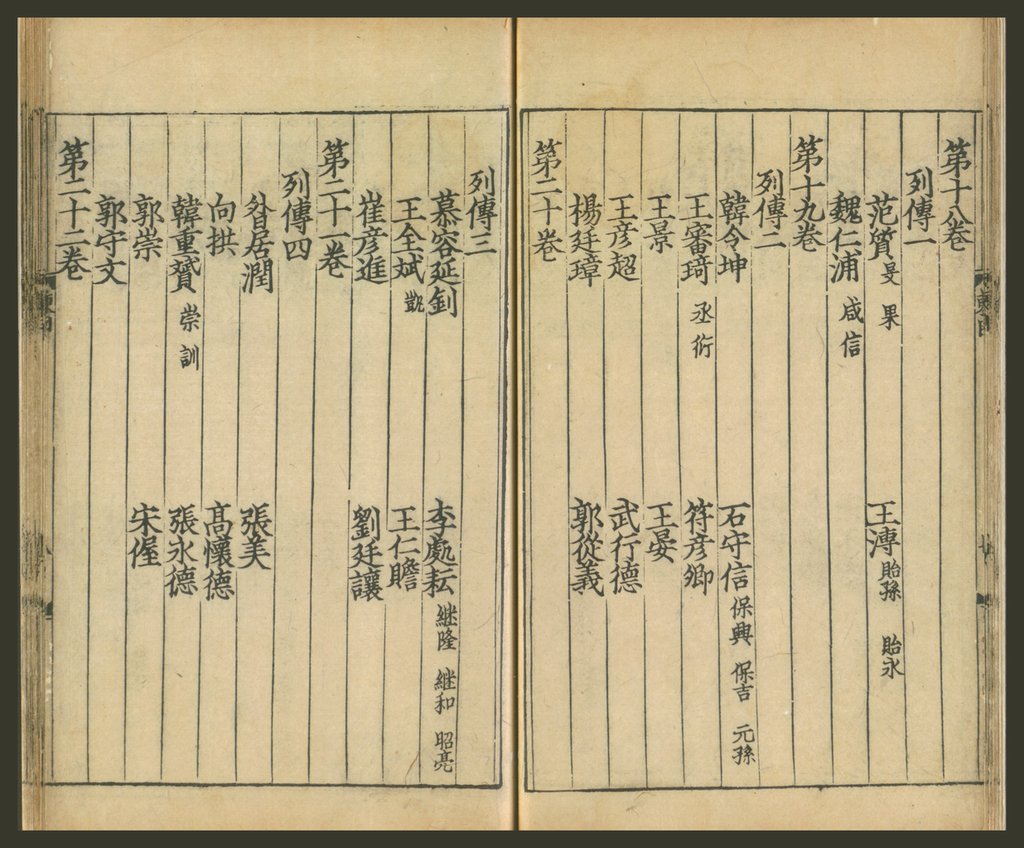 第十八卷
列傳一
范質 旻 果 王溥 貽孫 貽永
魏仁浦 咸信
第十九卷
列傳二
韓令坤 石守信 保興 保吉 元孫
王審琦 丞衍 符彦卿
王景 王晏
王彦超 武行德
楊廷璋 郭從義
第二十卷
列傳三
慕容延釗 李處耘 継隆 継和 昭亮
王全斌 凱 王仁贍
崔彦進 劉廷讓
第二十一卷
列傳四
昝居潤 張美
向拱 高懷德
韓重贇 崇訓 張永德
郭崇 宋偓
郭守文
第二十二卷